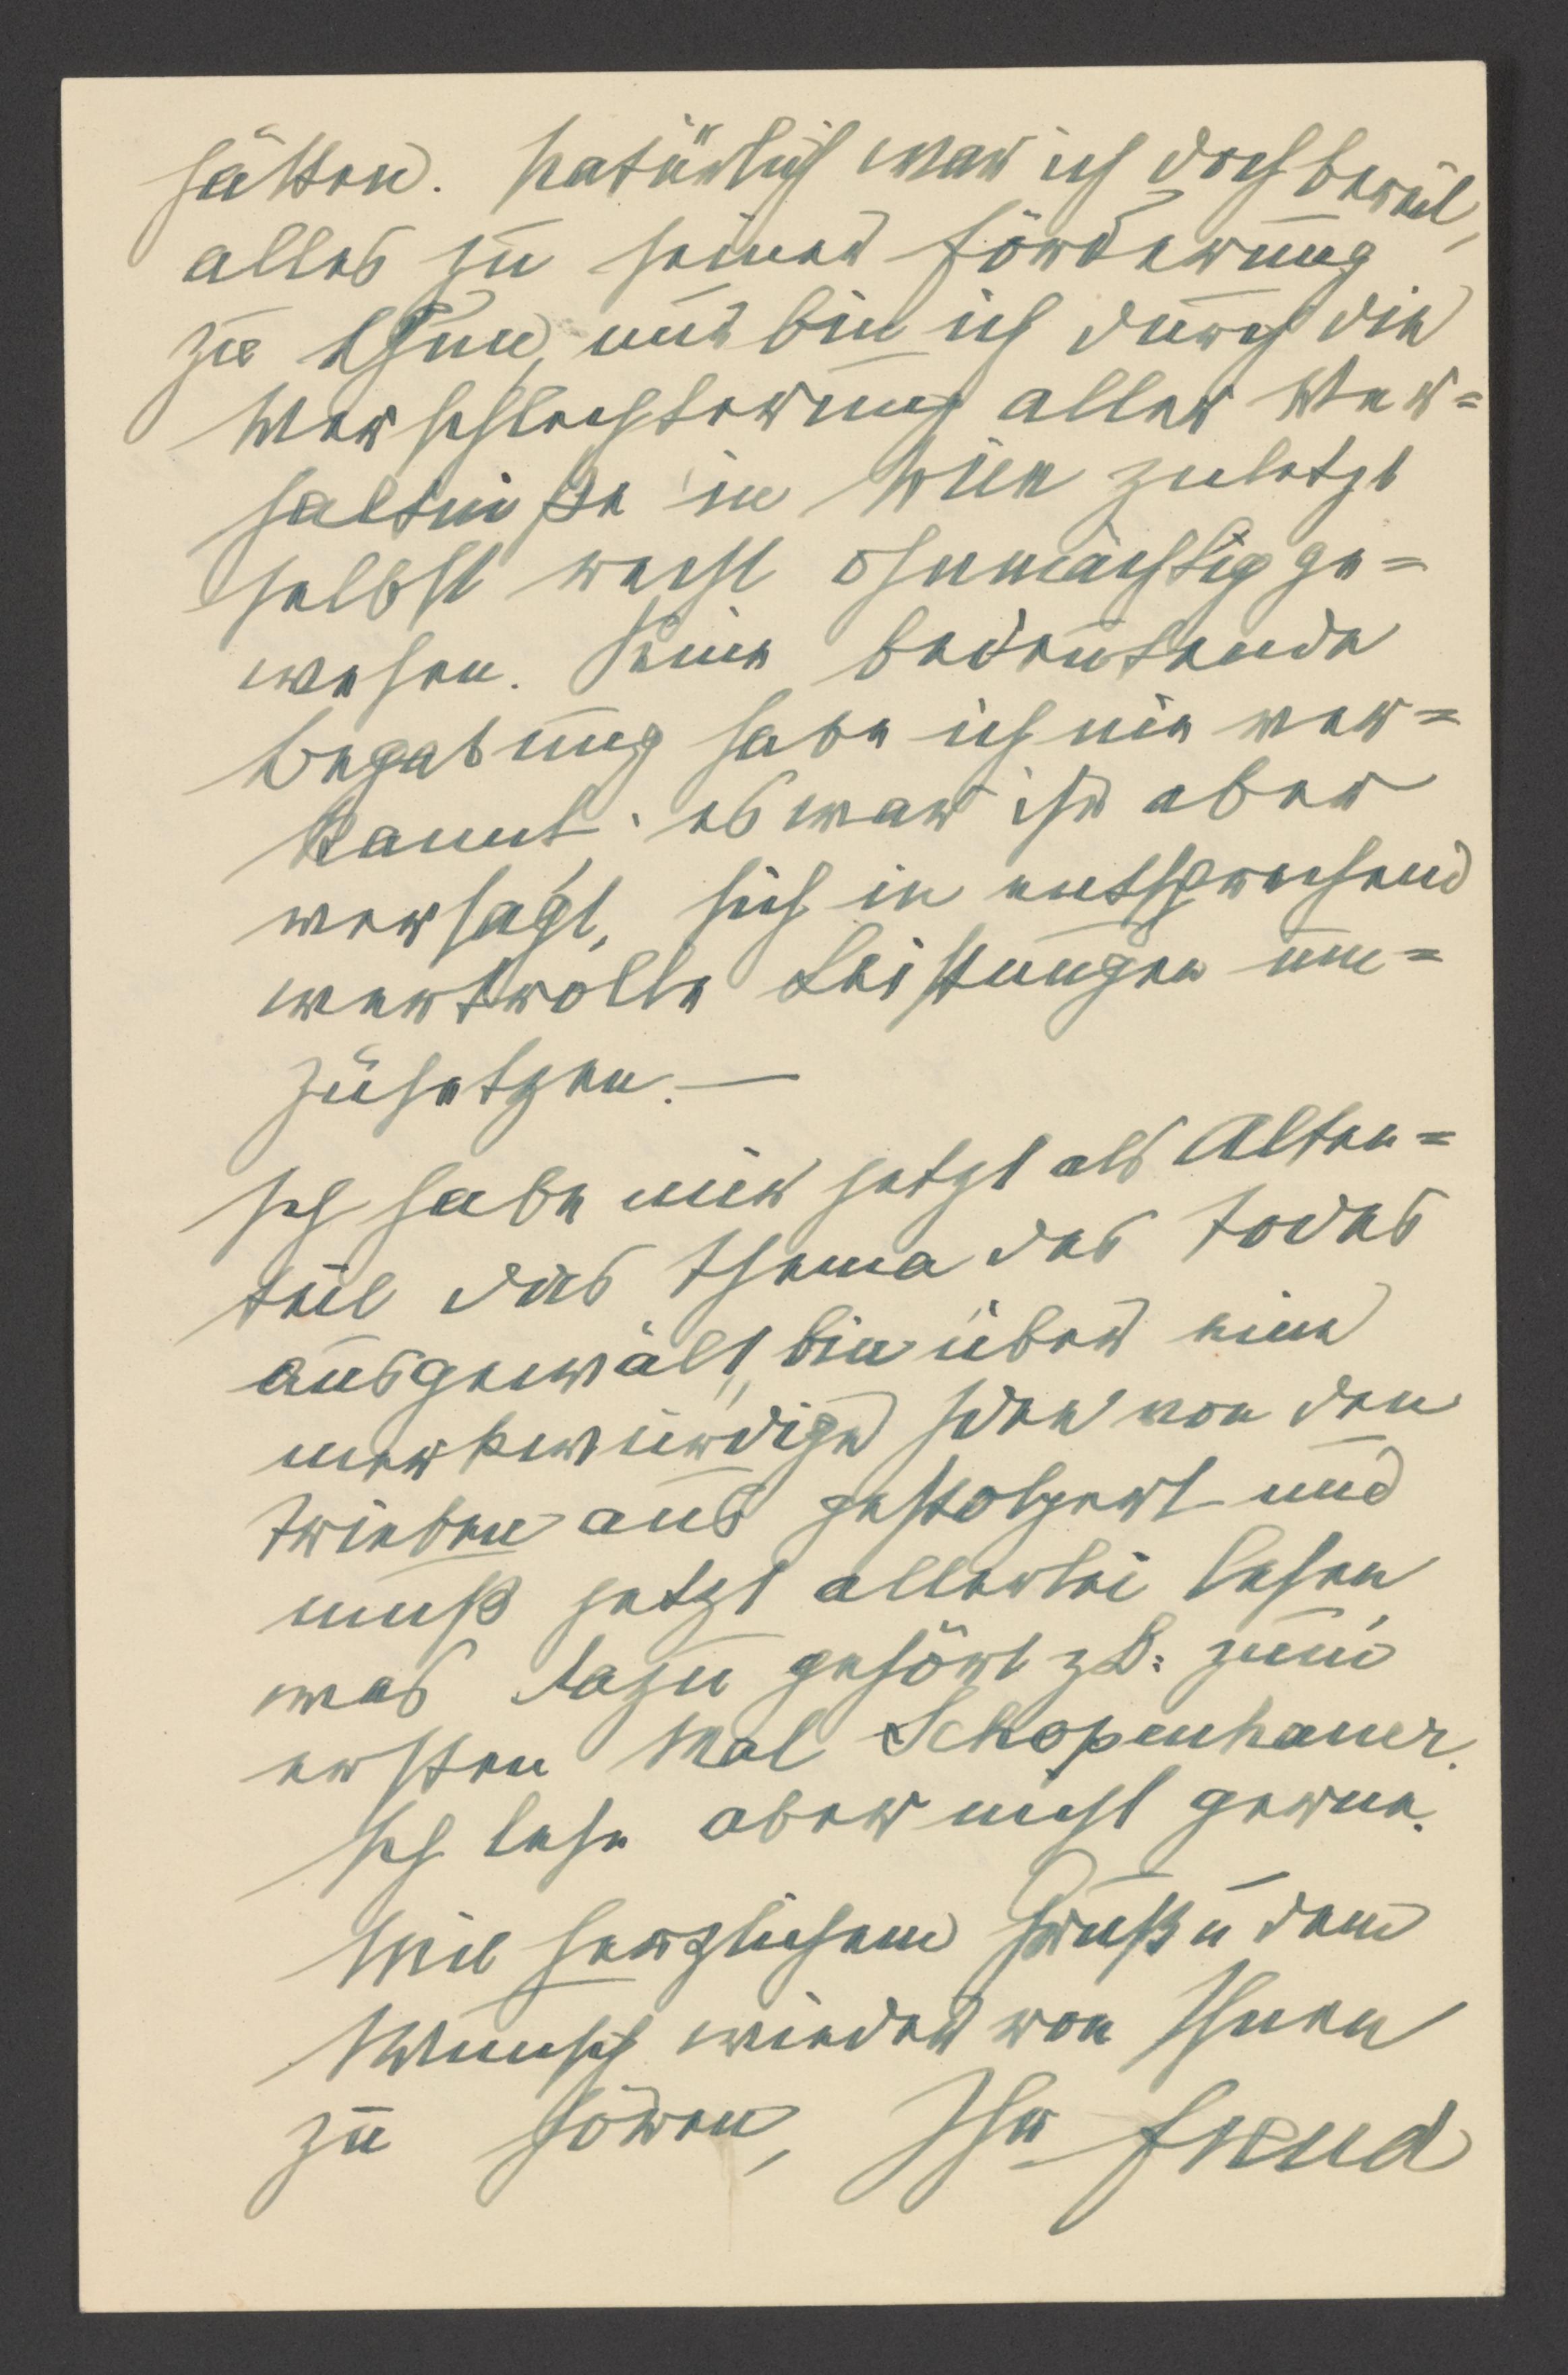 hätten. Natürlich war ich doch bereit,
alles zu seiner Förderung
zu thun, nur bin ich durch die
Verschlechterung aller Ver=
hältniße in Wien zuletzt
selbst recht ohnmächtig ge=
wesen. Seine bedeutende
Begabung habe ich nie ver=
kannt; es war ihr aber
versagt, sich in entsprechend
wertvolle Leistungen um=
zusetzen. —
Ich habe mir jetzt als Alten=
teil das Thema des Todes
ausgewält, bin über eine
merkwürdige Idee von den
Trieben aus gestolpert und
muß jetzt allerlei lesen,
was dazu gehört z.B. zum
ersten Mal Schopenhauer.
Ich lese aber nicht gerne.
Mit herzlichem Gruß u dem
Wunsch wieder von Ihnen
zu hören, Ihr Freud